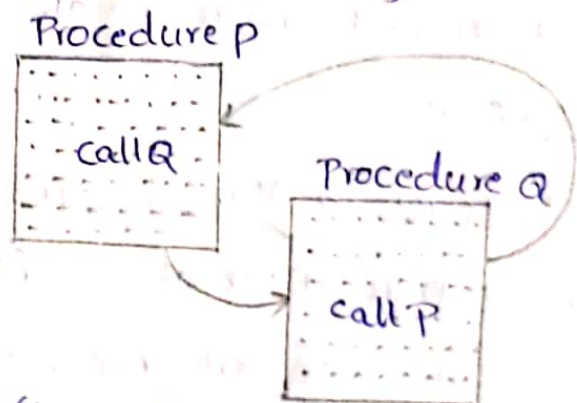 Procedure P
Call Q
Procedure Q
Call P